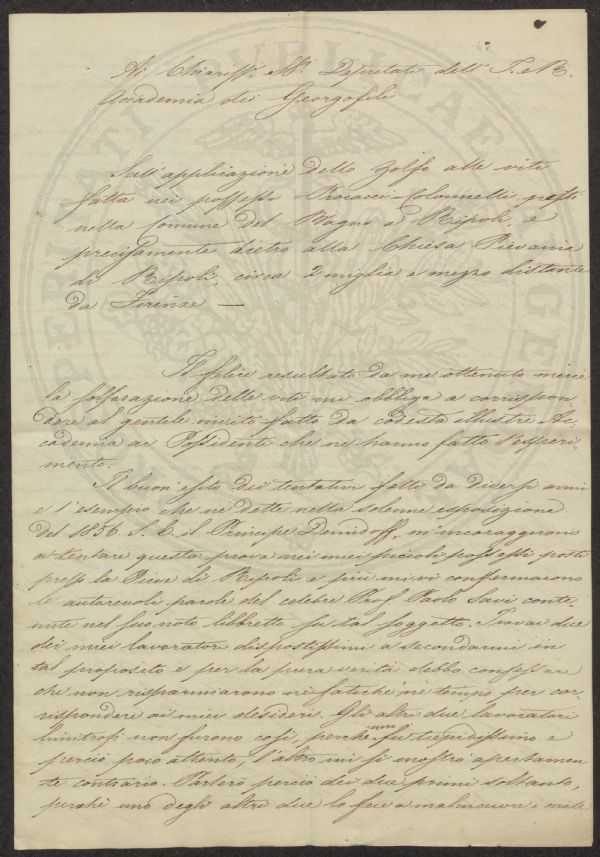 Ai Chiariss. SS.ri Deputati dell' I. e R.
Accademia dei Georgofili
Sull'applicazione dello Zolfo alle viti
fatta nei possessi Procacci-Colonnelli posti
nella Comune del Bagno a Ripoli, e
precisamente dietro alla Chiesa Pievania
di Ripoli, circa 2 miglia e mezzo distante
da Firenze —
Il felice resultato da me ottenuto mercè
la solforazione delle viti mi obbliga a corrispon
dere al gentile invito fatto da codesta illustre Ac-
cademia ai Possidenti che ne hanno fatto l'esperi-
mento.
Il buon esito dei tentativi fatti da diversi amici
e l'esempio che ne dette nella solenne esposizione
del 1856 S. E. il Principe Demidoff, m'incoraggirono
a tentare questa prova nei miei piccoli possessi posti
presso la Pieve di Ripoli e più mi vi confermarono
le autorevoli parole del celebre Prof. Paolo Savi conte-
nute nel suo noto libretto su tal soggetto. Trovai due
dei miei lavoratori dispostissimi a secondarmi in
tal proposito e per la pura verità debbo confessare
che non risparmiarono nè fatiche nè tempo per cor-
rispondere ai miei desideri. Gli altri due lavoratori
limitrofi non furono così, perchè uno fu tiepidissimo e
perciò poco attento, l'altro mi si mostrò apertamen-
te contrario. Parlerò perciò dei due primi soltanto,
perchè uno degli altri due lo fece a malincuore e male